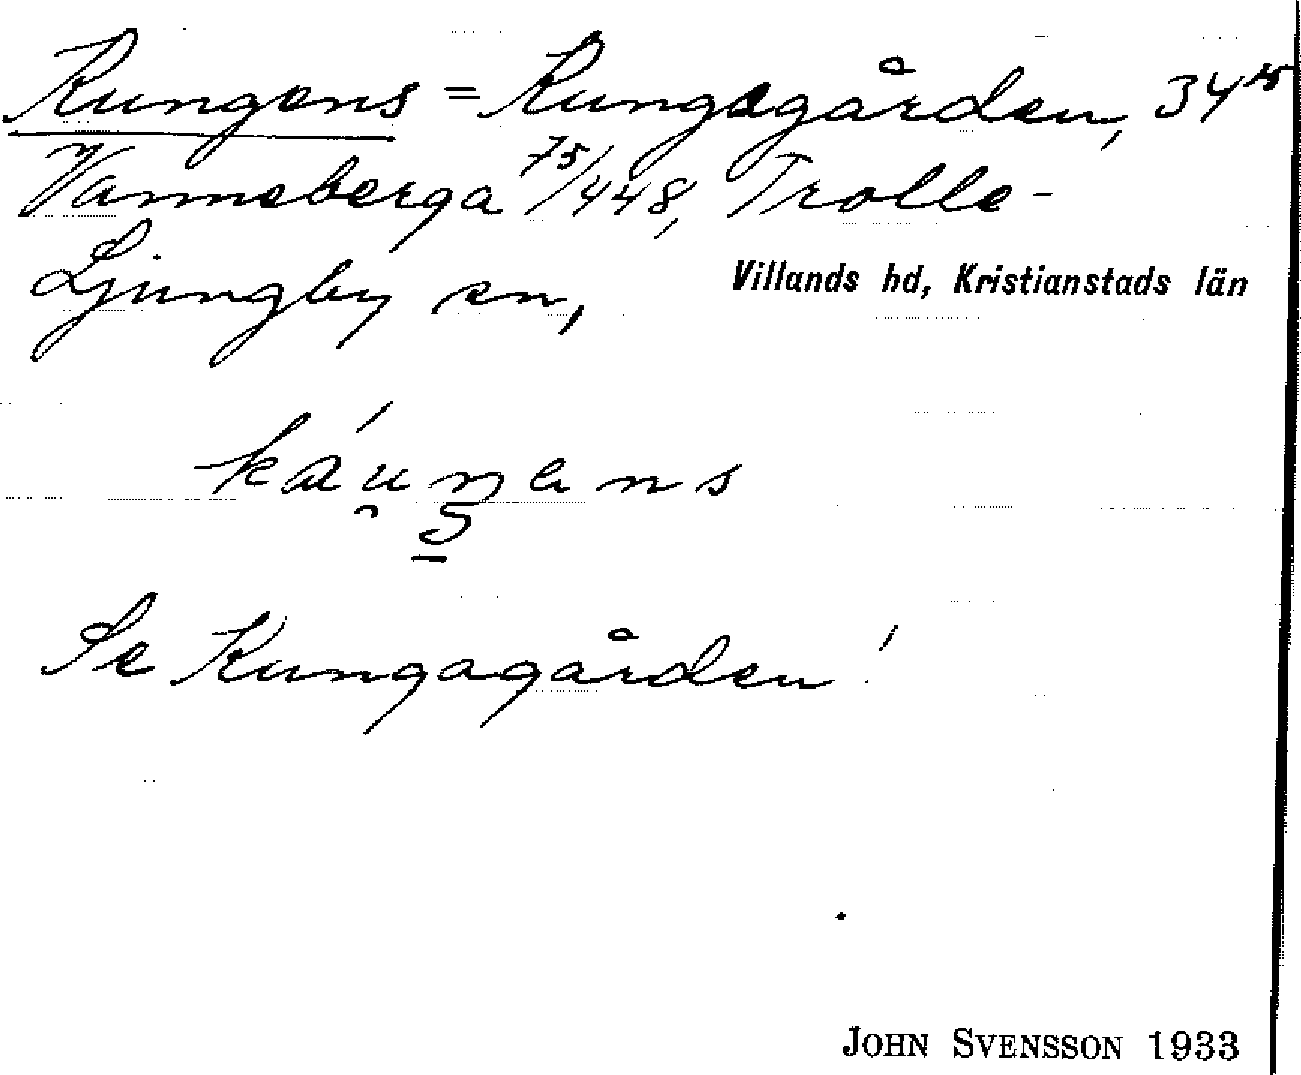 Kungens = Kungagården, 34¹⁵
Vanneberga 75/448, Trolle-
Ljungby sn, Villands hd, Kristianstads län
káu̯ŋəns
5
Se Kungagården!
JOHN SVENSSON 1933